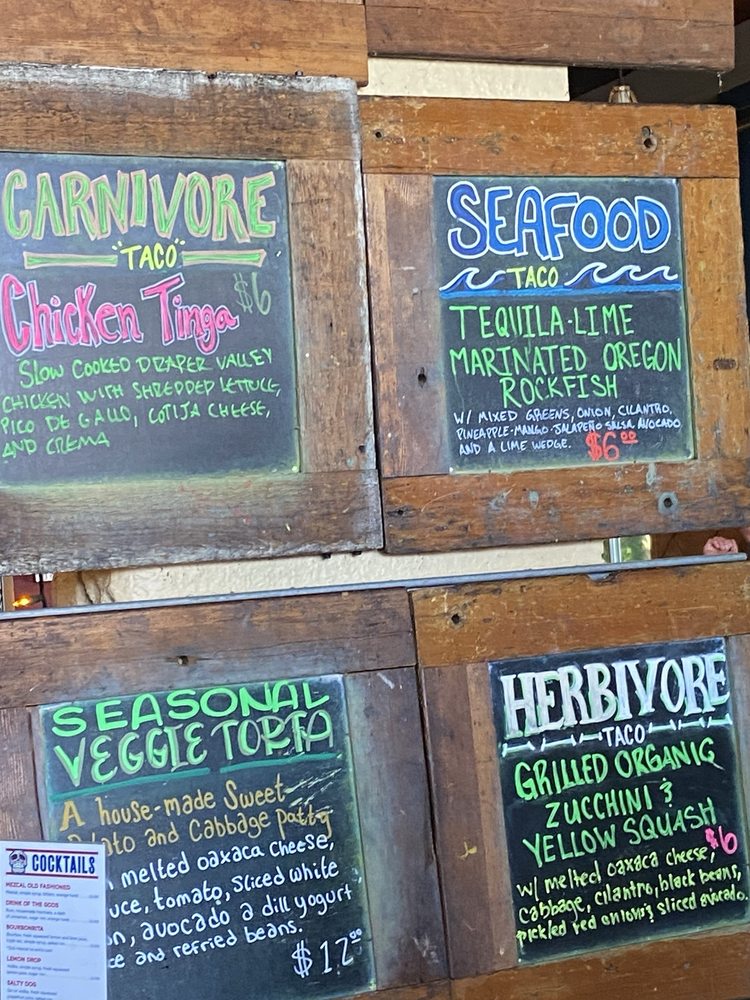 CARNIVORE
"TACO"
Chicken Tinga $6
SLOW COOKED DRAPER VALLEY
CHICKEN WITH SHREDDED LETTUCE,
PICO DE GALLO, COTIJA CHEESE,
AND CREMA
SEAFOOD
TACO
TEQUILA-LIME
MARINATED OREGON
ROCKFISH
W/ MIXED GREENS, ONION, CILANTRO,
PINEAPPLE-MANGO-JALAPEÑO SALSA, AVOCADO
AND A LIME WEDGE. $6.00
SEASONAL
VEGGIE TORTA
A house-made Sweet
and Cabbage patty
melted oaxaca cheese,
tomato, sliced white
avocado a dill yogurt
and refried beans.
$12.00
HERBIVORE
TACO
GRILLED ORGANIC
ZUCCHINI &
YELLOW SQUASH
$6
w/ melted oaxaca cheese,
cabbage, cilantro, black beans,
pickled red onions & sliced avocado.
COCKTAILS
MEZCAL OLD FASHIONED
DRINK OF THE GODS
BOURBONRITA
LEMON DROP
SALTY DOG